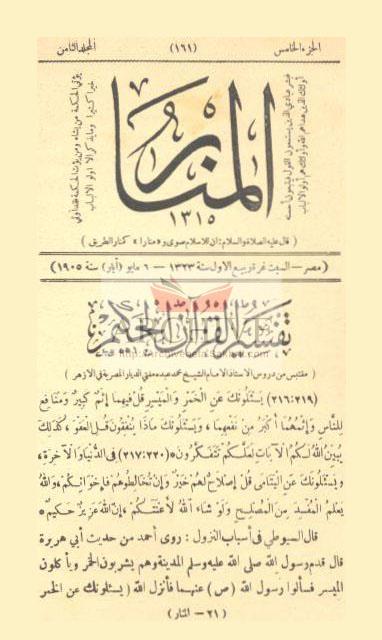 الجزء الخامس (١٦١) المجلد الثامن
يؤتي الحكمة من يشاء ومن يؤت الحكمة فقد أوتي
خيرا كثيرا وما يذكر إلا أولو الالباب
المنار
١٣١٥
فبشر عبادي الذين يستمعون القول فيتبعون أحسنه
أولئك الذين هداهم الله وأولئك هم أولو الالباب
( قال عليه الصلاة والسلام : ان للاسلام صوى و « منارا » كمنار الطريق )
( مصر – السبت غرة ربيع الاول سنة ١٣٢٣ – ٦ مايو (أيار) سنة ١٩٠٥ )
تفسير القرآن الحكيم
مقتبس من دروس الاستاذ الامام الشيخ محمد عبده مفتي الديار المصرية في الازهر
(٢١٦:٢١٩) يَسْئَلُونَكَ عَنِ الْخَمْرِ وَالْمَيْسِرِ قُلْ فِيهِمَا إِثْمٌ كَبِيرٌ وَمَنَافِعُ
لِلنَّاسِ وَإِثْمُهُمَا أَكْبَرُ مِنْ نَفْعِهِمَا ، وَيَسْئَلُونَكَ مَاذَا يُنْفِقُونَ قُلِ الْعَفْوَ ، كَذَلِكَ
يُبَيِّنُ اللهُ لَكُمُ الْآيَاتِ لَعَلَّكُمْ تَتَفَكَّرُونَ * (٢١٧:٢٢٠) فِي الدُّنْيَا وَالْآخِرَةِ ،
وَيَسْئَلُونَكَ عَنِ الْيَتَامَى قُلْ إِصْلَاحٌ لَهُمْ خَيْرٌ وَإِنْ تُخَالِطُوهُمْ فَإِخْوَانُكُمْ ، وَاللهُ
يَعْلَمُ الْمُفْسِدَ مِنَ الْمُصْلِحِ وَلَوْ شَاءَ اللهُ لَأَعْنَتَكُمْ ، إِنَّ اللهَ عَزِيزٌ حَكِيمٌ *
قال السيوطي في أسباب النزول : روى أحمد من حديث أبي هريرة
قال قدم رسول الله صلى الله عليه وسلم المدينة وهم يشربون الخمر ويأكلون
الميسر فسألوا رسول الله (ص) عنهما فأنزل الله (يسئلونك عن الخمر
(٢١ – المنار)